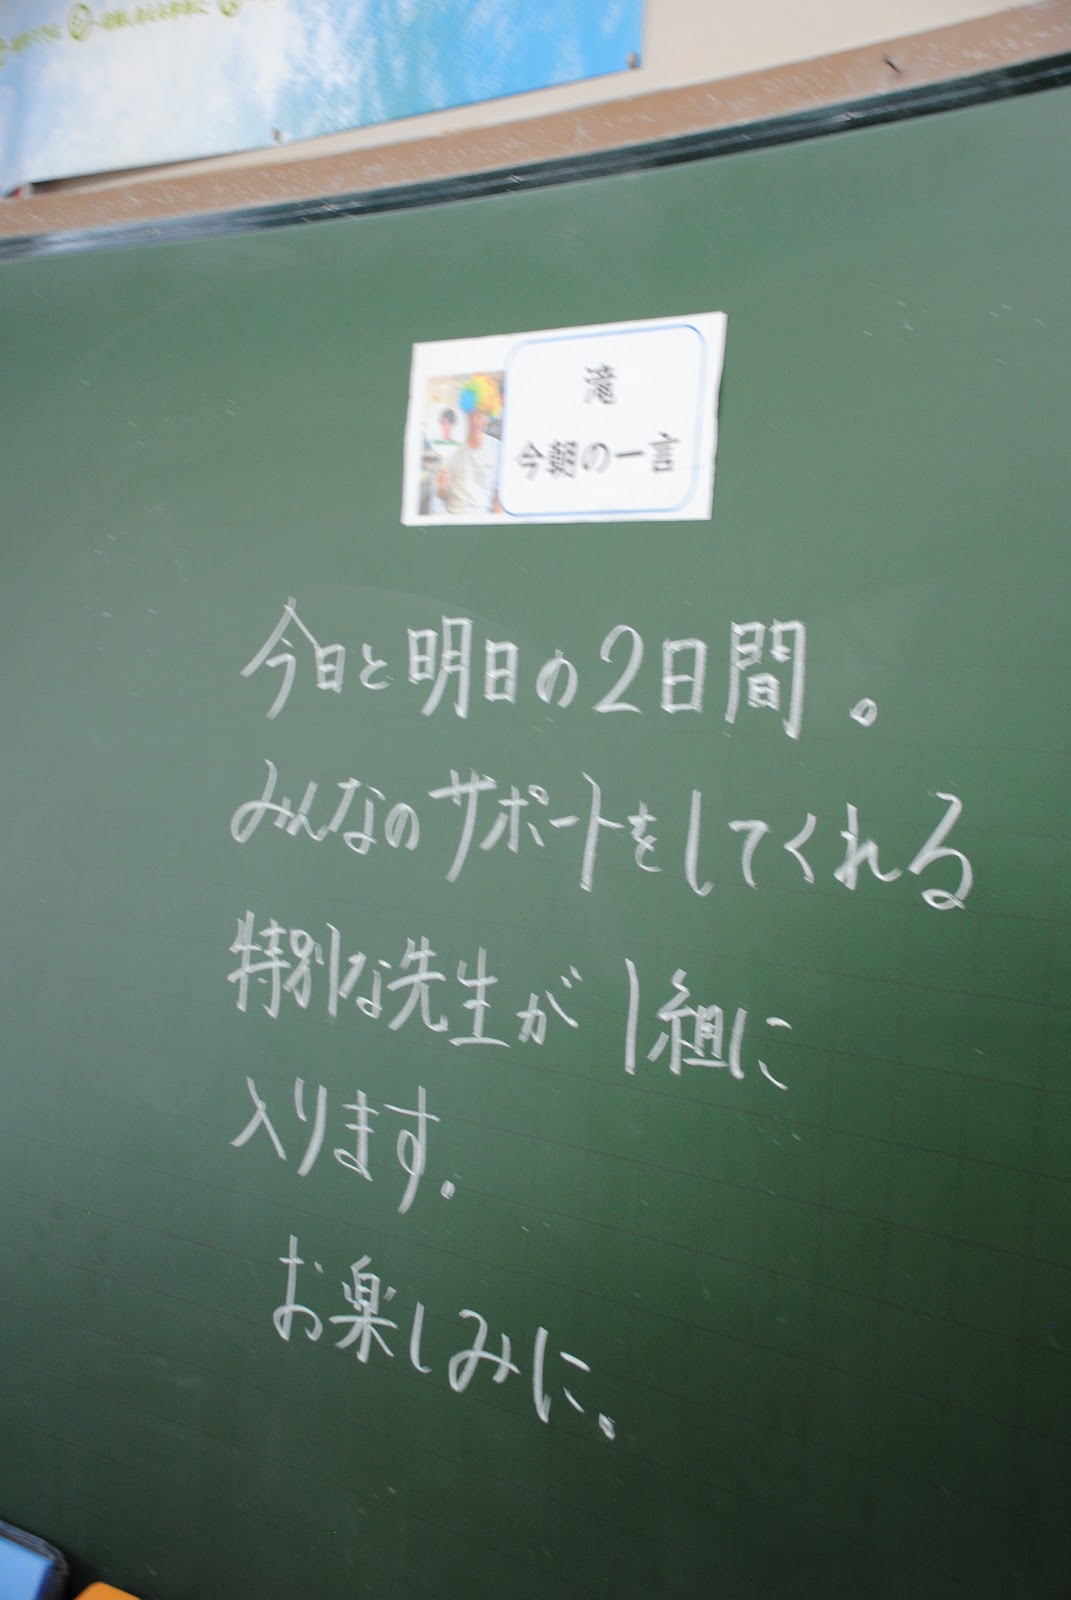 滝
今朝の一言
今日と明日の2日間。
みんなのサポートをしてくれる
特別な先生が1組に
入ります。
お楽しみに。